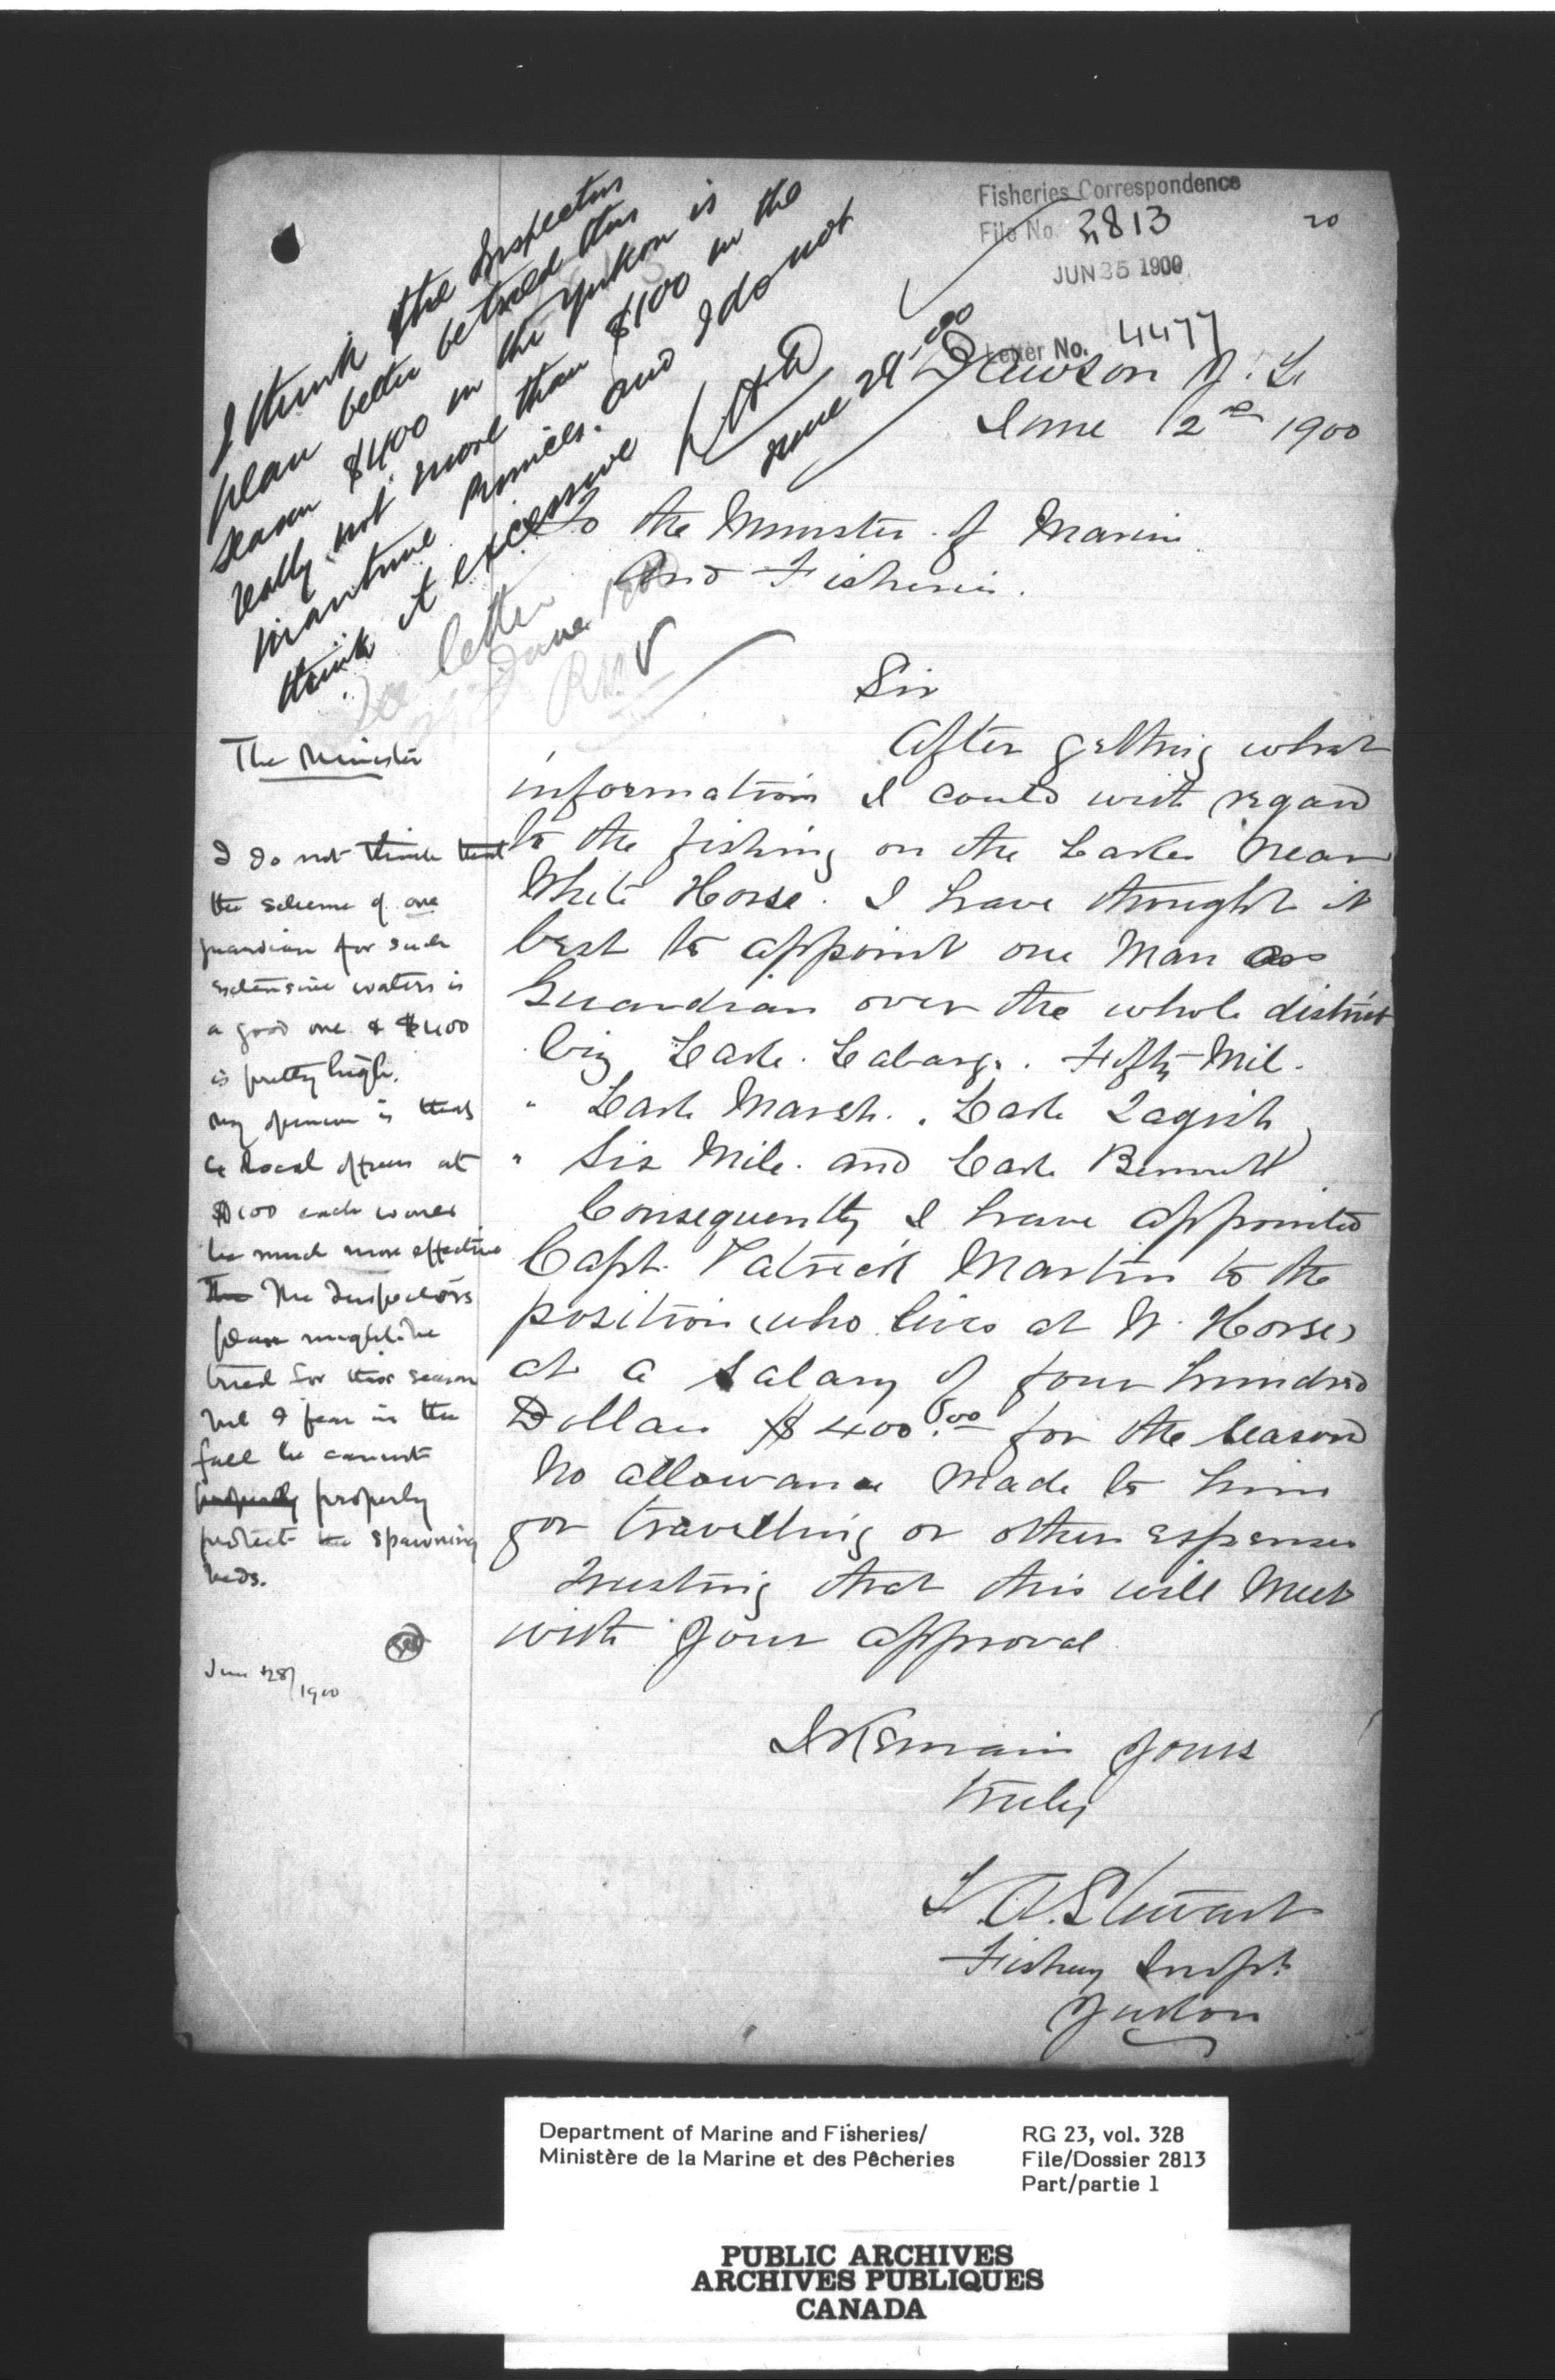 Fisheries Correspondence
File No. 2813
20
JUN 25 1900
Letter No. 4477
I think the Inspectors
plan better be tried this
season $400 in the Yukon is
really not more than $100 in the
maritime Provinces. and I do not
think it excessive
June 29 - 00
See letter
June 1900
Dawson Y. T.
June 12 1900
To the Minister of Marine
and Fisheries.
Sir
After getting what
information I could with regard
to the fishing on the Lakes near
White Horse. I have thought it
best to appoint one man as
Guardian over the whole district
viz Lake Labarge. Fifty Mile.
" Lake Marsh. Lake Tagish
" Six Mile. and Lake Bennett
Consequently I have appointed
Capt. Patrick Martin to the
position (who lives at W. Horse)
at a salary of four hundred
Dollars $400.00 for the season
No allowance made to him
for travelling or other expenses
Trusting that this will meet
with your approval
I Remain Yours
truly
T. A. Stewart
Fishery Inspt.
Yukon
The Minister
I do not think that
the scheme of one
guardian for such
extensive waters is
a good one & $400
is pretty high.
My opinion is that
4 local officers at
$100 each would
be much more effective
The The Inspectors
plan might be
tried for this season
but I fear in the
fall he cannot
properly properly
protect the spawning
beds.
June 28/1900
Department of Marine and Fisheries/
Ministère de la Marine et des Pêcheries
RG 23, vol. 328
File/Dossier 2813
Part/partie 1
PUBLIC ARCHIVES
ARCHIVES PUBLIQUES
CANADA